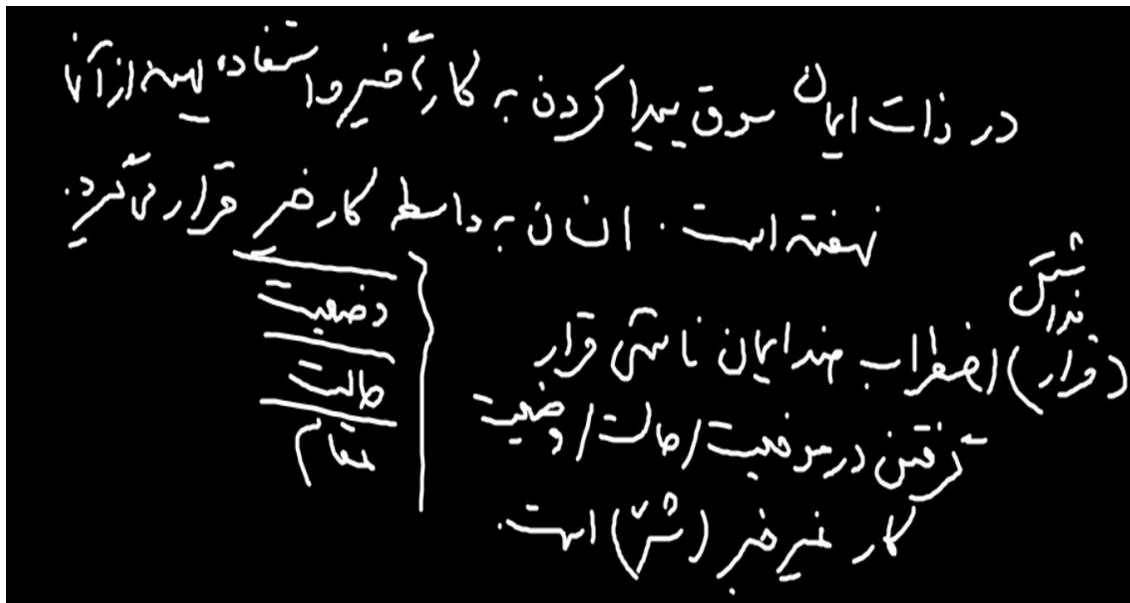 در ذات ایمان سوق پیدا کردن به کار خیر و استفاده بهینه از آنها
نهفته است. انسان به واسطه کار خیر قرار می‌گیرد.
وضعیت
حالت
مقام
(قرار) اضطراب ضد ایمان ناشی قرار
گرفتن در موقعیت / حالت / وضعیت
کار غیر خیر (شرّ) است.